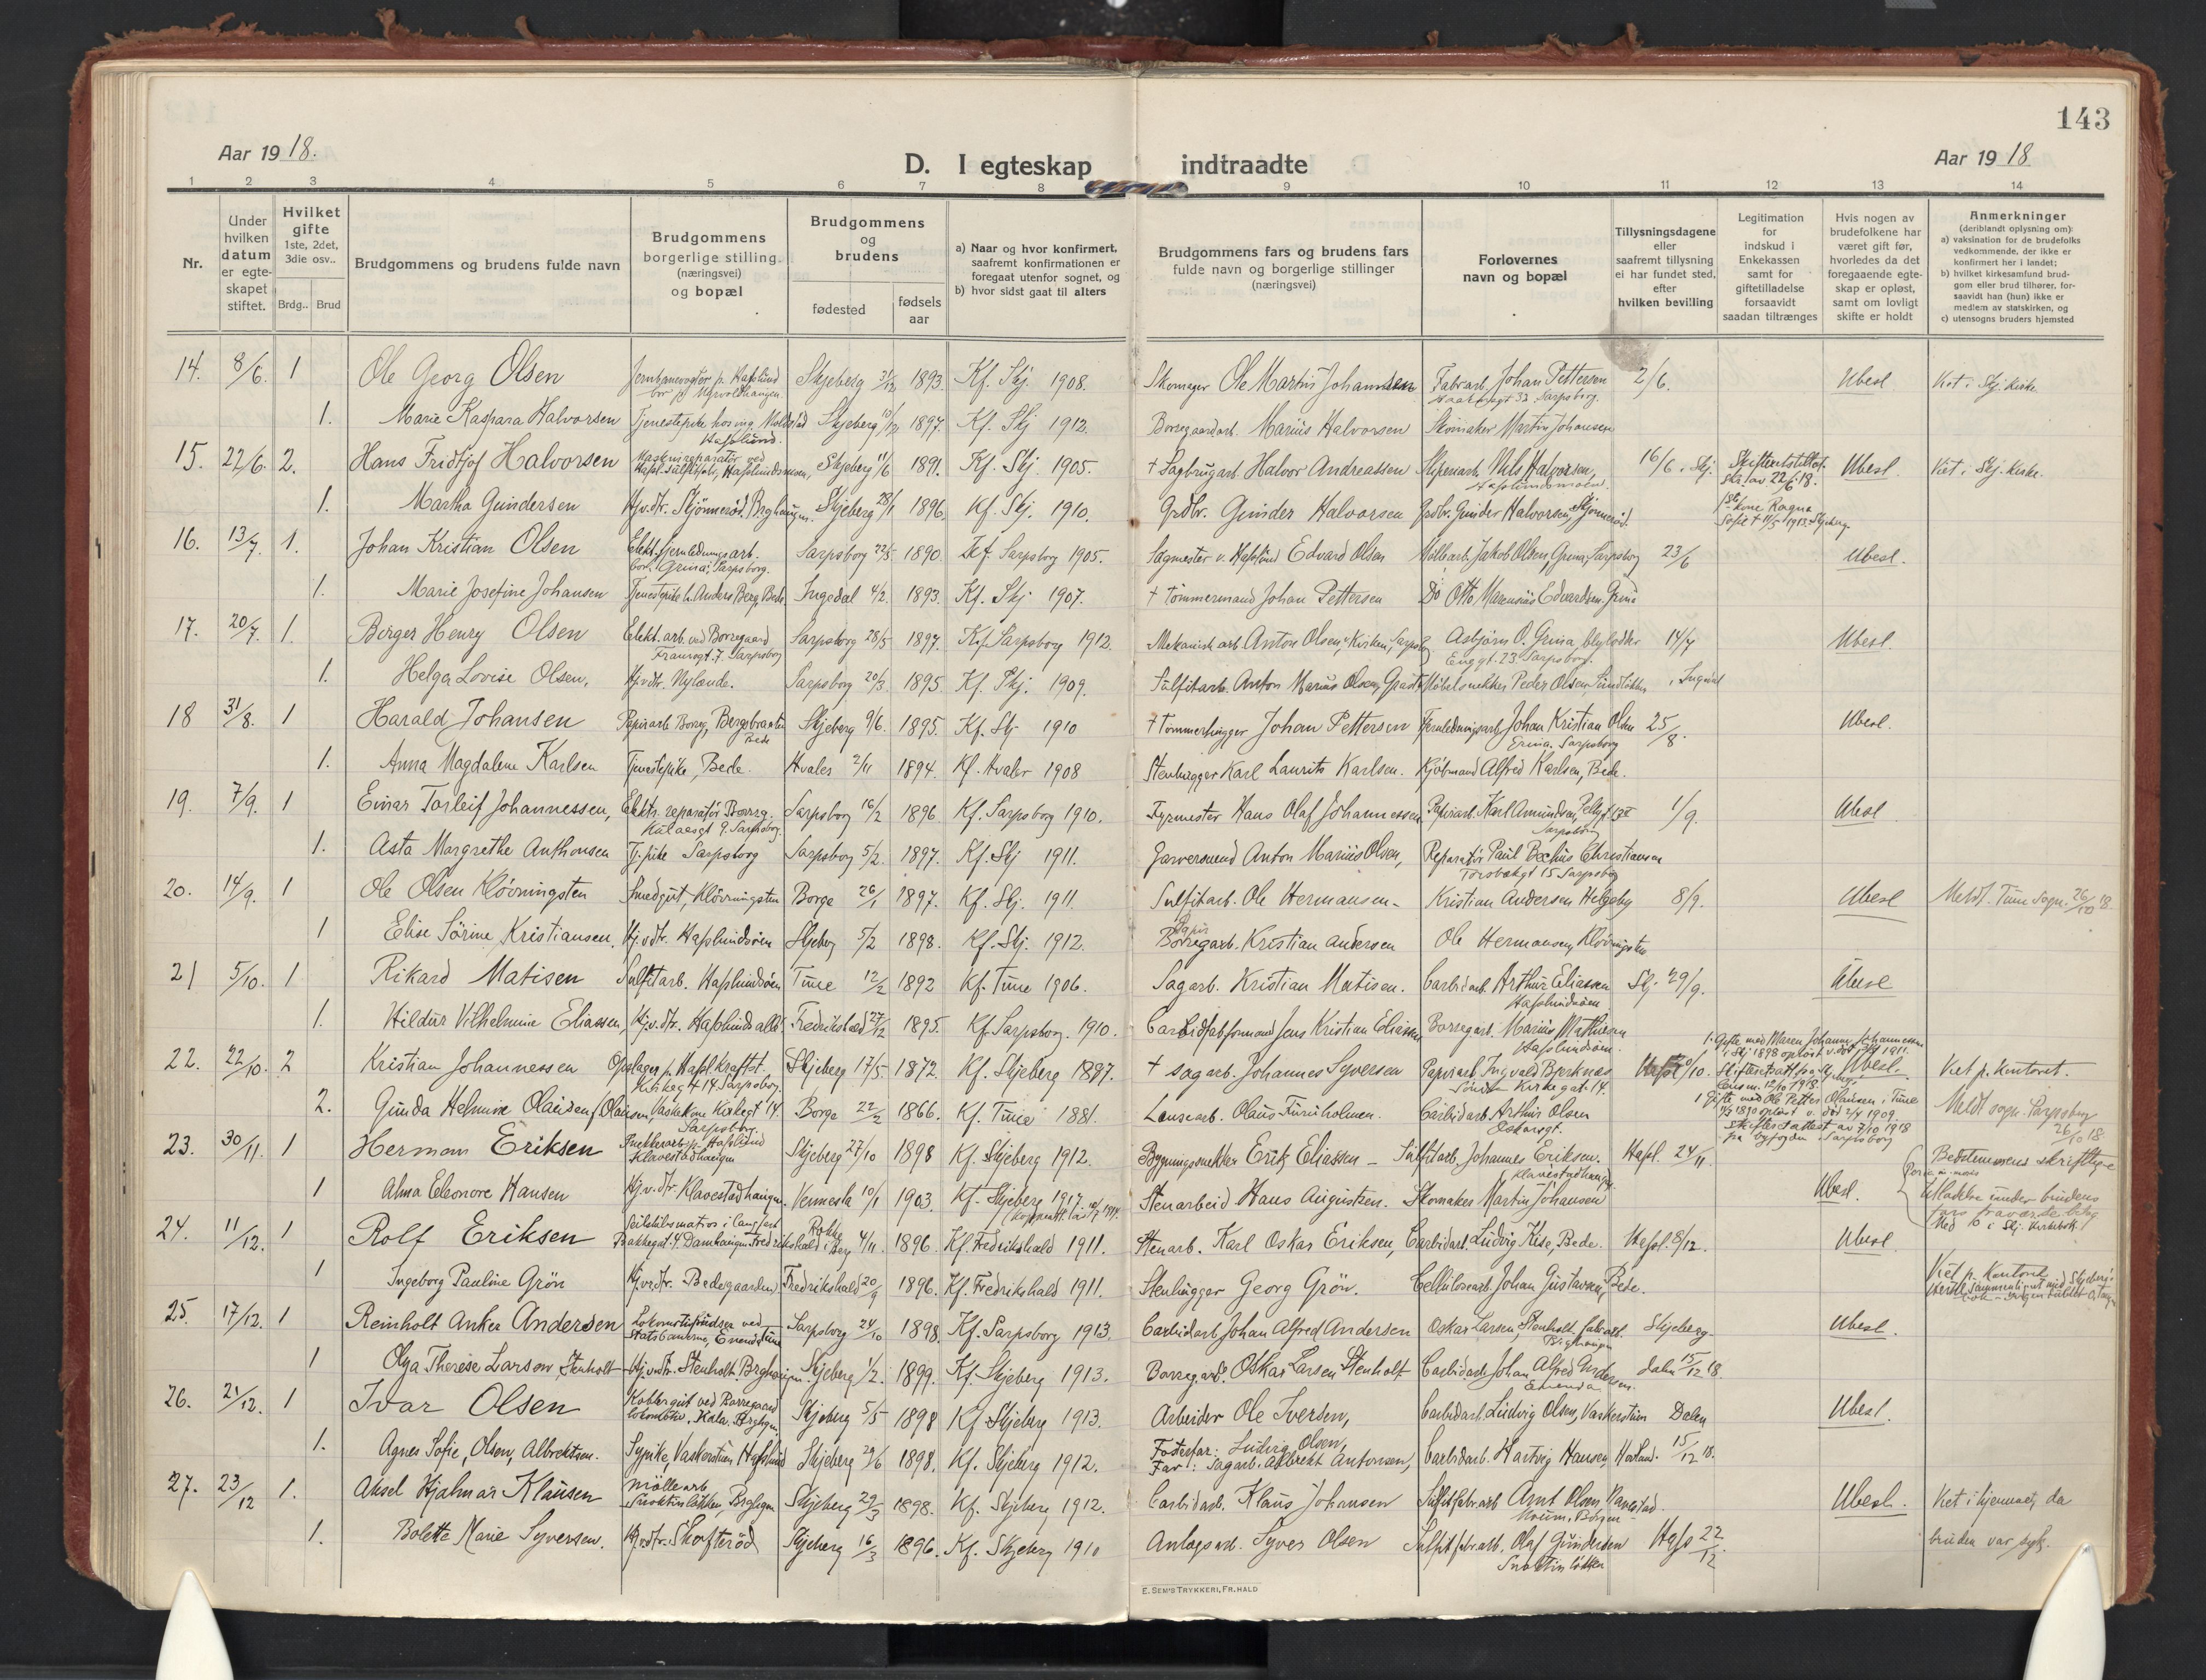 143
Aar 1918.
D. I egteskap indtraadte
Aar 1918
1 2 3 4 5 6 7 8 9 10 11 12 13 14
Nr.
Under hvilken datum er egteskapet stiftet.
Hvilket gifte 1ste, 2det, 3die osv..
Brdg.. Brud
Brudgommens og brudens fulde navn
Brudgommens borgerlige stilling (næringsvei) og bopæl
Brudgommens og brudens
fødested
fødsels aar
a) Naar og hvor konfirmert, saafremt konfirmationen er foregaat utenfor sognet, og
b) hvor sidst gaat til alters
Brudgommens fars og brudens fars fulde navn og borgerlige stillinger (næringsvei)
Forlovernes navn og bopæl
Tillysningsdagene eller saafremt tillysning ei har fundet sted, efter hvilken bevilling
Legitimation for indskud i Enkekassen samt for giftetilladelse forsaavidt saadan tiltrænges
Hvis nogen av brudefolkene har været gift før, hvorledes da det foregaaende egteskap er opløst, samt om lovligt skifte er holdt
Anmerkninger (deriblandt oplysning om):
a) vaksination for de brudefolks vedkommende, der ikke er konfirmert her i landet;
b) hvilket kirkesamfund brudgom eller brud tilhører, forsaavidt han (hun) ikke er medlem av statskirken, og
c) utensogns bruders hjemsted
14. 8/6. 1 Ole Georg Olsen Skjeberg 31/12 1893. Kf. Skj. 1908. Skomager Ole Martin Johannsen Fabrarb. Johan Pettersen Sarpsborg. 2/6. Ubesl Viet i Skj. kirke
1. Marie Kaspara Halvorsen Tjenestepike hos ing. Moldstad Hafslund. Skjeberg 1897. Kf. Skj 1912. Borregaardarb. Marius Halvorsen Skomaker Martin Johansen
15. 22/6. 2. Hans Fridtjof Halvorsen Maskinreparatør ved Hafsl. sulfitfabr., Hafslundsmoen, Skjeberg 11/6 1891. Kf. Skj. 1905. + Sagbrugarb. Halvor Andreassen Nils Halvorsen, Hafslundsmoen. 16/6. Skj. Skifteretsattest. skr. av 22/6.18. Ubesl. Viet i Skj. kirke.
1. Martha Gundersen Hj.v.dtr. Skjønnerød. Brghaugen. Skjeberg 28/1 1896. Kf. Skj. 1910. Grdbr. Gunder Halvorsen Grdbr. Gunder Halvorsen, Skjønnerød. 1ste kone Ragna Sofie + 11/5 1913. Skjeberg
16. 13/7. 1. Johan Kristian Olsen Elekt. fjernledningsarb. bor: Grina, Sarpsborg. Sarpsborg 22/5 1890. Kf. Sarpsborg 1905. Sagmester v. Hafslund Edvard Olsen Jakob Olsen, Grina, Sarpsborg 23/6 Ubesl.
1. Marie Josefine Johansen Tjenestpike h. Anders Berg, Bede Ingedal 4/2. 1893. Kf. Skj 1907. + Tømmermand Johan Pettersen Do Otto Marensius Edvardsen. Grina
17. 20/7. 1. Birger Henry Olsen Elekt. arb. ved Borregaard 7. Sarpsborg Sarpsborg 28/5 1897. Kf. Sarpsborg 1912. Mekanisk arb. Anton Olsen, Kirken, Sarpsbg Asbjørn O. Grina, Enggt. 23. Sarpsborg. 14/7 Ubesl.
1. Helga Lovise Olsen, Hj.v.dtr. Nylænde. Sarpsborg 20/3. 1895. Kf. Skj. 1909. Sulfitarb. Anton Marius Olsen, Møbelsnekker Peder Olsen i Ingedal
18 31/8. 1 Harald Johansen Papirarb. Borreg., Bergsbraaten Bede Skjeberg 9/6. 1895. Kf. Skj 1910 + Tømmerhugger Johan Pettersen Fjernledningsarb. Johan Kristian Olsen Grina. Sarpsborg 25/8. Ubesl.
1. Anna Magdalene Karlsen Tjenestepike, Bede. Hvaler 2/11 1894. Kf. Hvaler 1908 Stenhugger Karl Laurits Karlsen. Kjøbmand Alfred Karlsen, Bede.
19. 7/9. 1 Einar Torleif Johannessen, Elektr. reparatør Borreg. 9. Sarpsborg. Sarpsborg 16/2 1896. Kf. Sarpsborg 1910. Fyrmester Hans Olaf Johannessen Papirarb. Karl Amundsen, Sarpsborg 1/9. Ubesl
1. Asta Margrethe Anthonsen Tj. pike Sarpsborg Sarpsborg 5/2. 1897. Kf. Skj 1911. Garversvend Anton Marius Olsen, Reparatør Paul Christiansen 15 Sarpsborg
20. 14/9. 1 Ole Olsen Kløvningsten Smedgut, Kløvningsten Borge 26/1 1897. Kf. Skj. 1911. Sulfitarb. Ole Hermansen Kristian Andersen Helgeby 8/9. Ubesl Meldt Tune Sogn. 26/10 18.
1 Elise Sørine Kristiansen. Hj.v.dtr. Hafslundsøen Skjeberg 5/2 1898. Kf. Skj. 1912. Papir Borregarb. Kristian Andersen Ole Hermansen, Kløvningsten
21 5/10. 1 Rikard Matisen Sulfitarb. Hafslundsøen Tune 12/2 1892 Kf. Tune 1906. Sagarb. Kristian Matisen. Carbidarb. Arthur Eliassen Hafslundsøen Skj. 29/9. Ubesl
1. Hildur Vilhelmine Eliassen, Hj.v.dtr. Hafslunds allé Fredrikshald 27/12 1895. Kf. Sarpsborg. 1910. Carbidfabformand Jens Kristian Eliassen Borregarb. Marius Mathiesen Hafslundsøen.
22. 22/10. 2 Kristian Johannessen Opslager p. Hafsl. kraftst. Kirkegt 14. Sarpsborg. Skjeberg 17/5. 1872. Kf. Skjeberg 1897. + sagarb. Johannes Syversen Papirarb. Ingvald Bjerknes Kirkegat. 14. 1. Gifte med Maren Johanne Johannessen i Skj 1898 opløst v. død 1911. Ubesl. Viet p. kontoret.
2. Gunda Helmine Olausen, Vaskekone Kirkegt 14. Sarpsborg. Borge 22/2 1866. Kf. Tune 1881. Olaus Furuholmen. Carbidarb. Arthur Olsen Oskarsgt. 1 Gifte med Ole Petter Olausen i Tune 1890 opløst v. død 1909. Skifteretsattest av 7/10 1918 fra byfogden i Sarpsborg Meldt sogn. Sarpsborg 26/10 18
23. 30/11. 1 Herman Eriksen Snekkerarb. p. Hafslund Klavestadhaugen Skjeberg 27/10 1898 Kf. Skjeberg 1912. Bygningssnekker Erik Eliassen Sulfitarb. Johannes Eriksen. Klavestadhaugen. Hafsl. 24/11.
1 Alma Eleonore Hansen Hj.v.dtr. Klavestadhaugen. Vennesla 10/1 1903. Kf. Skjeberg 1917 Stenarbeid Hans Augustsen. Skomaker Martin Johansen Ubesl. Bedstemorens skriftlige tilladelse under brudens fars fravær i Skj. kirkebok
24. 11/12. 1 Rolf Eriksen Seilskibsmatros i langfart Bakkegat. 4. Damhaugen. Fredrikshald Rokke i Berg 4/11. 1896. Kf. Fredrikshald 1911. Stenarb. Karl Oskar Eriksen, Carbidarb. Ludvig Kise, Bede. Hafsl. 8/12. Ubesl
1 Ingeborg Pauline Grøn Hj.v.dtr. Bedegaarden Fredrikshald 20/9 1896. Kf. Fredrikshald 1911. Stenhugger Georg Grøn. Cellulosearb. Johan Gustavsen, Bede. Viet p. Kontoret
25. 17/12. 1 Reinholt Anker Andersen Lokomotivpudser ved Statsbanerne, Enenda, Tune Sarpsborg 24/10 1898. Kf. Sarpsborg 1913. Carbidarb. Johan Alfred Andersen Oskar Larsen, Stenholt, fabrarb. Skjeberg Ubesl.
1 Olga Therese Larsen, Stenholt Hj.v.dtr. Stenholt. Brghaugen. Skjeberg 1/2. 1899. Kf. Skjeberg 1913. Borreg. arb. Oskar Larsen Stenholt Carbidarb. Johan Alfred Andersen. Enenda Dalen 15/12 18.
26. 21/12. 1 Ivar Olsen Koblergut ved Borregaard lokomotiv. Kala, Brghgn Skjeberg 5/5 1898 Kf. Skjeberg 1913. Arbeider Ole Iversen, Carbidarb. Ludvig Olsen, Vaskerstuen Dalen Ubesl.
1. Agnes Sofie, Olsen, Albrektsen. Sypike, Vaskerstuen Hafslund Skjeberg 29/6 1898. Kf. Skjeberg 1912. Fosterfar: Ludvig Olsen, Far: Sagarb. Albrekt Antonsen, Carbidarb. Hartvig Hansen, 15/12 18.
27. 23/12 1. Aksel Hjalmar Klausen Møllearb. Brghgn Skjeberg 29/3 1898. Kf. Skjeberg 1912. Carbidarb. Klaus Johansen Sulfitfabrarb Arnt Olsen Ubesl. Viet i hjemmet, da
1. Bolette Marie Syversen. Hj.v.dtr. Skofterød Skjeberg 16/3 1896. Kf. Skjeberg 1910 Anlægsarb. Syver Olsen Sulfitfabrarb. Olaf Gundersen Hafs 22/12 bruden var syk.
E. SEM'S TRYKKERI, FR.HALD